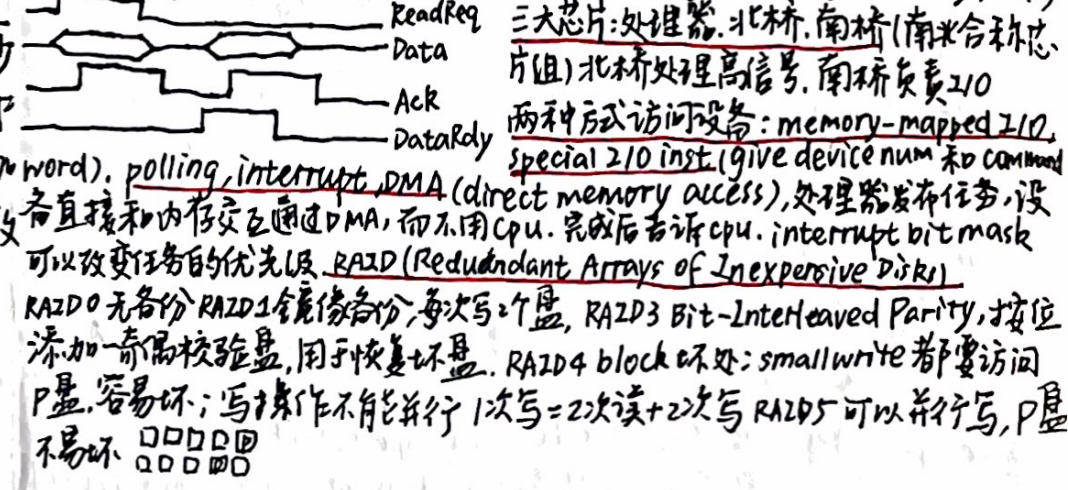 ReadReq
Data
Ack
DataRdy
三大芯片:处理器.北桥.南桥(南北合称芯
片组)北桥处理高信号.南桥负责I/O
两种方式访问设备:memory-mapped I/O,
special I/O inst.(give device num 和 command
word). polling,interrupt,DMA(direct memory access),处理器发布任务,设
备直接和内存交互通过DMA,而不用cpu.完成后告诉cpu.interrupt bit mask
可以改变任务的优先级.RAID(Reduandant Arrays of Inexpensive Disks)
RAID0无备份RAID1全镜像备份,每次写2个盘,RAID3 Bit-Interleaved Parity,按位
添加一奇偶校验盘,用于恢复坏盘.RAID4 block坏处:small write都要访问
P盘,容易坏;写操作不能并行 1次写=2次读+2次写 RAID5可以并行写,P盘
不易坏